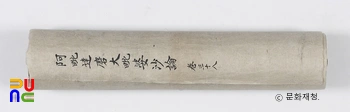 阿毗達磨大毗婆沙論 卷三十八
ⓒ 문화재청.